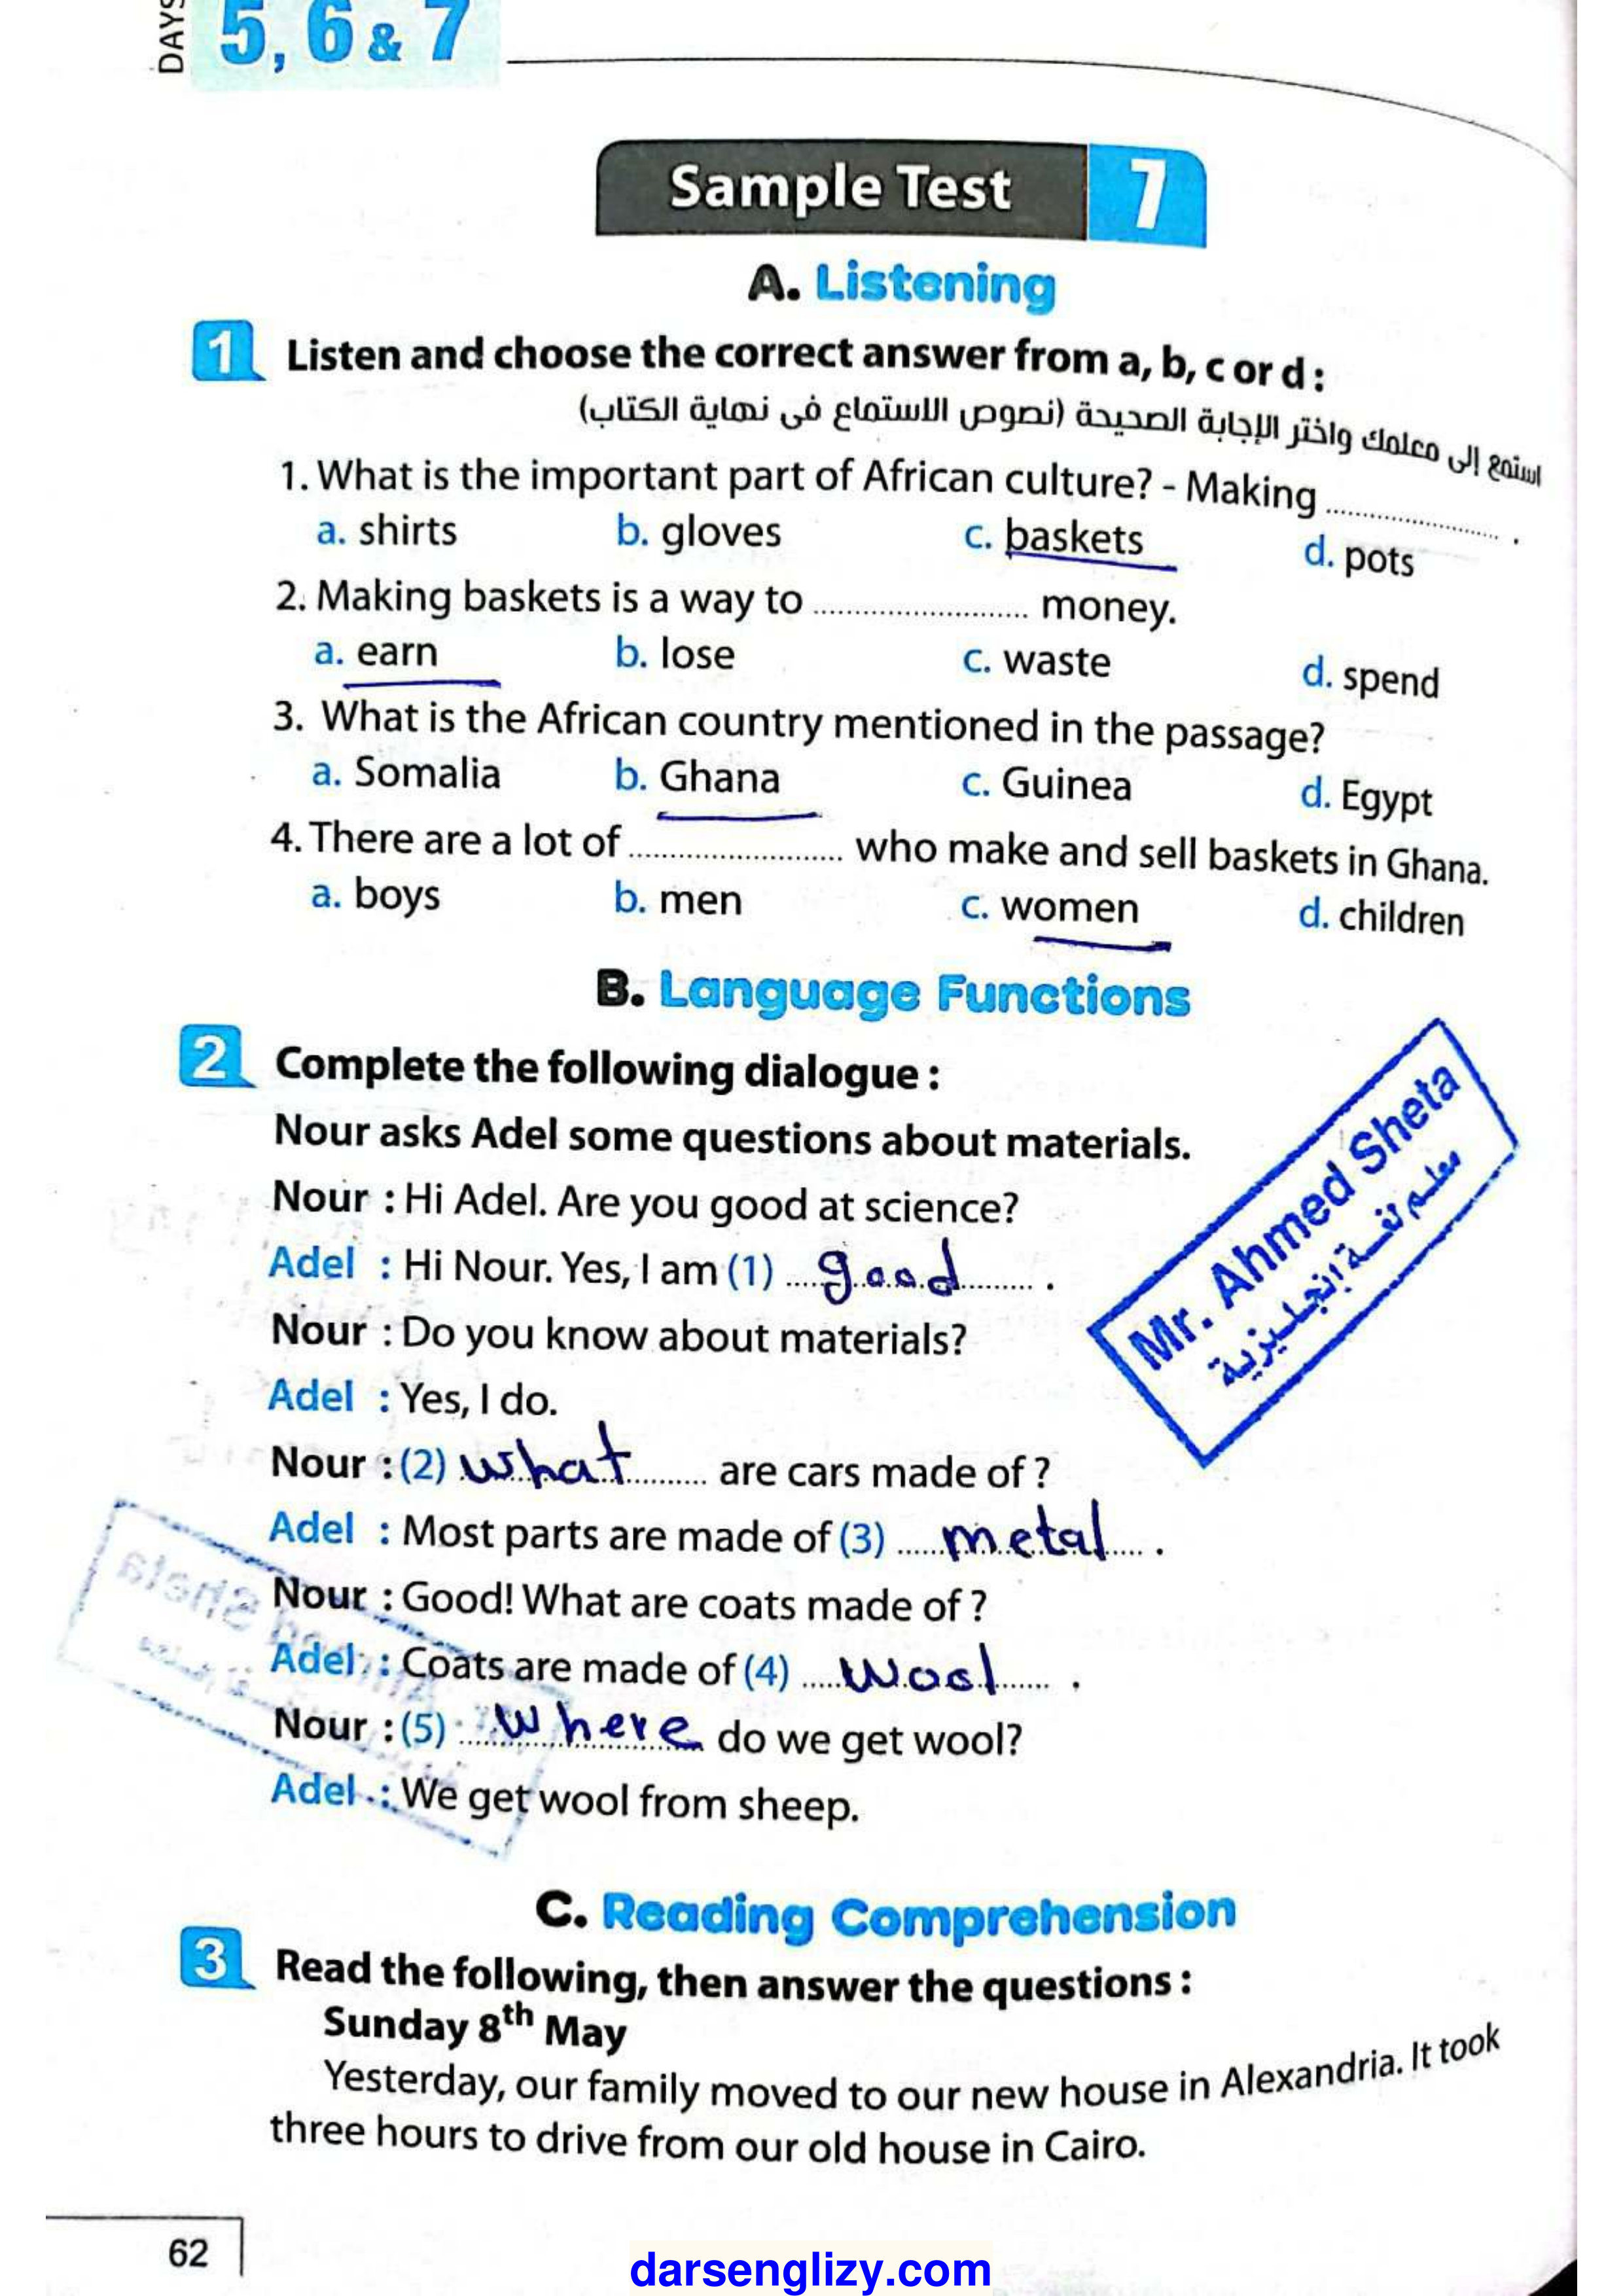 DAYS 5, 6 & 7
Sample Test 7
A. Listening
1 Listen and choose the correct answer from a, b, c or d :
استمع إلى معلمك واختر الإجابة الصحيحة (نصوص الاستماع فى نهاية الكتاب)
1. What is the important part of African culture? - Making .................... .
a. shirts b. gloves c. baskets d. pots
2. Making baskets is a way to .................... money.
a. earn b. lose c. waste d. spend
3. What is the African country mentioned in the passage?
a. Somalia b. Ghana c. Guinea d. Egypt
4. There are a lot of .................... who make and sell baskets in Ghana.
a. boys b. men c. women d. children
B. Language Functions
2 Complete the following dialogue :
Nour asks Adel some questions about materials.
Nour : Hi Adel. Are you good at science?
Adel : Hi Nour. Yes, I am (1) good .
Nour : Do you know about materials?
Adel : Yes, I do.
Nour : (2) what are cars made of ?
Adel : Most parts are made of (3) metal .
Nour : Good! What are coats made of ?
Adel : Coats are made of (4) wool .
Nour : (5) where do we get wool?
Adel : We get wool from sheep.
Mr. Ahmed Sheta
معلم لغة إنجليزية
C. Reading Comprehension
3 Read the following, then answer the questions :
Sunday 8th May
Yesterday, our family moved to our new house in Alexandria. It took
three hours to drive from our old house in Cairo.
62
darsenglizy.com